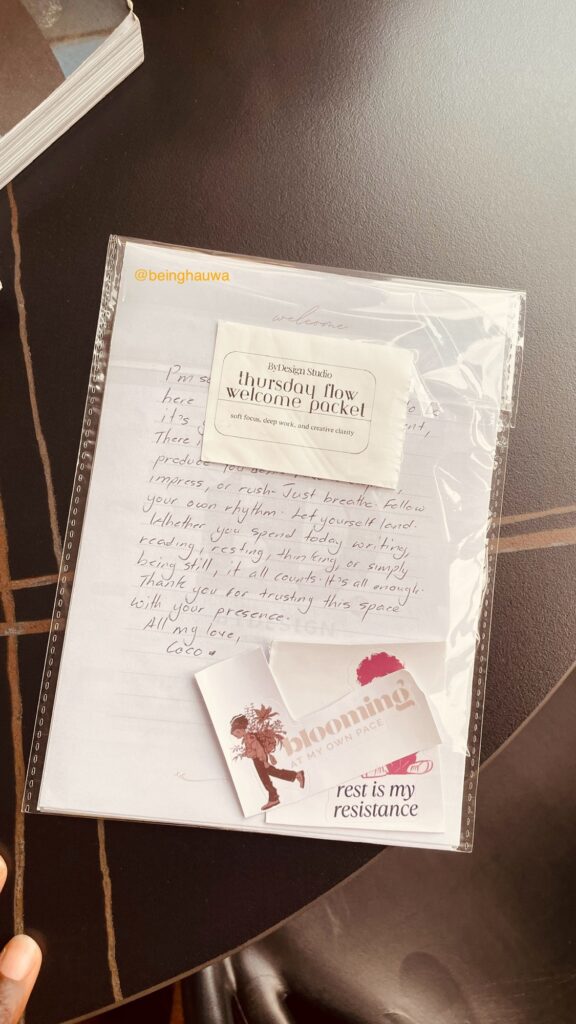 @beinghauwa
welcome
ByDesign Studio
thursday flow
welcome packet
soft focus, deep work, and creative clarity
I'm
here
it's
There
produce
impress, or rush. Just breathe. Follow
your own rhythm. Let yourself land.
Whether you spend today writing,
reading, resting, thinking, or simply
being still, it all counts. It's all enough.
Thank you for trusting this space
with your presence.
All my love,
Coco
blooming
AT MY OWN PACE
rest is my
resistance